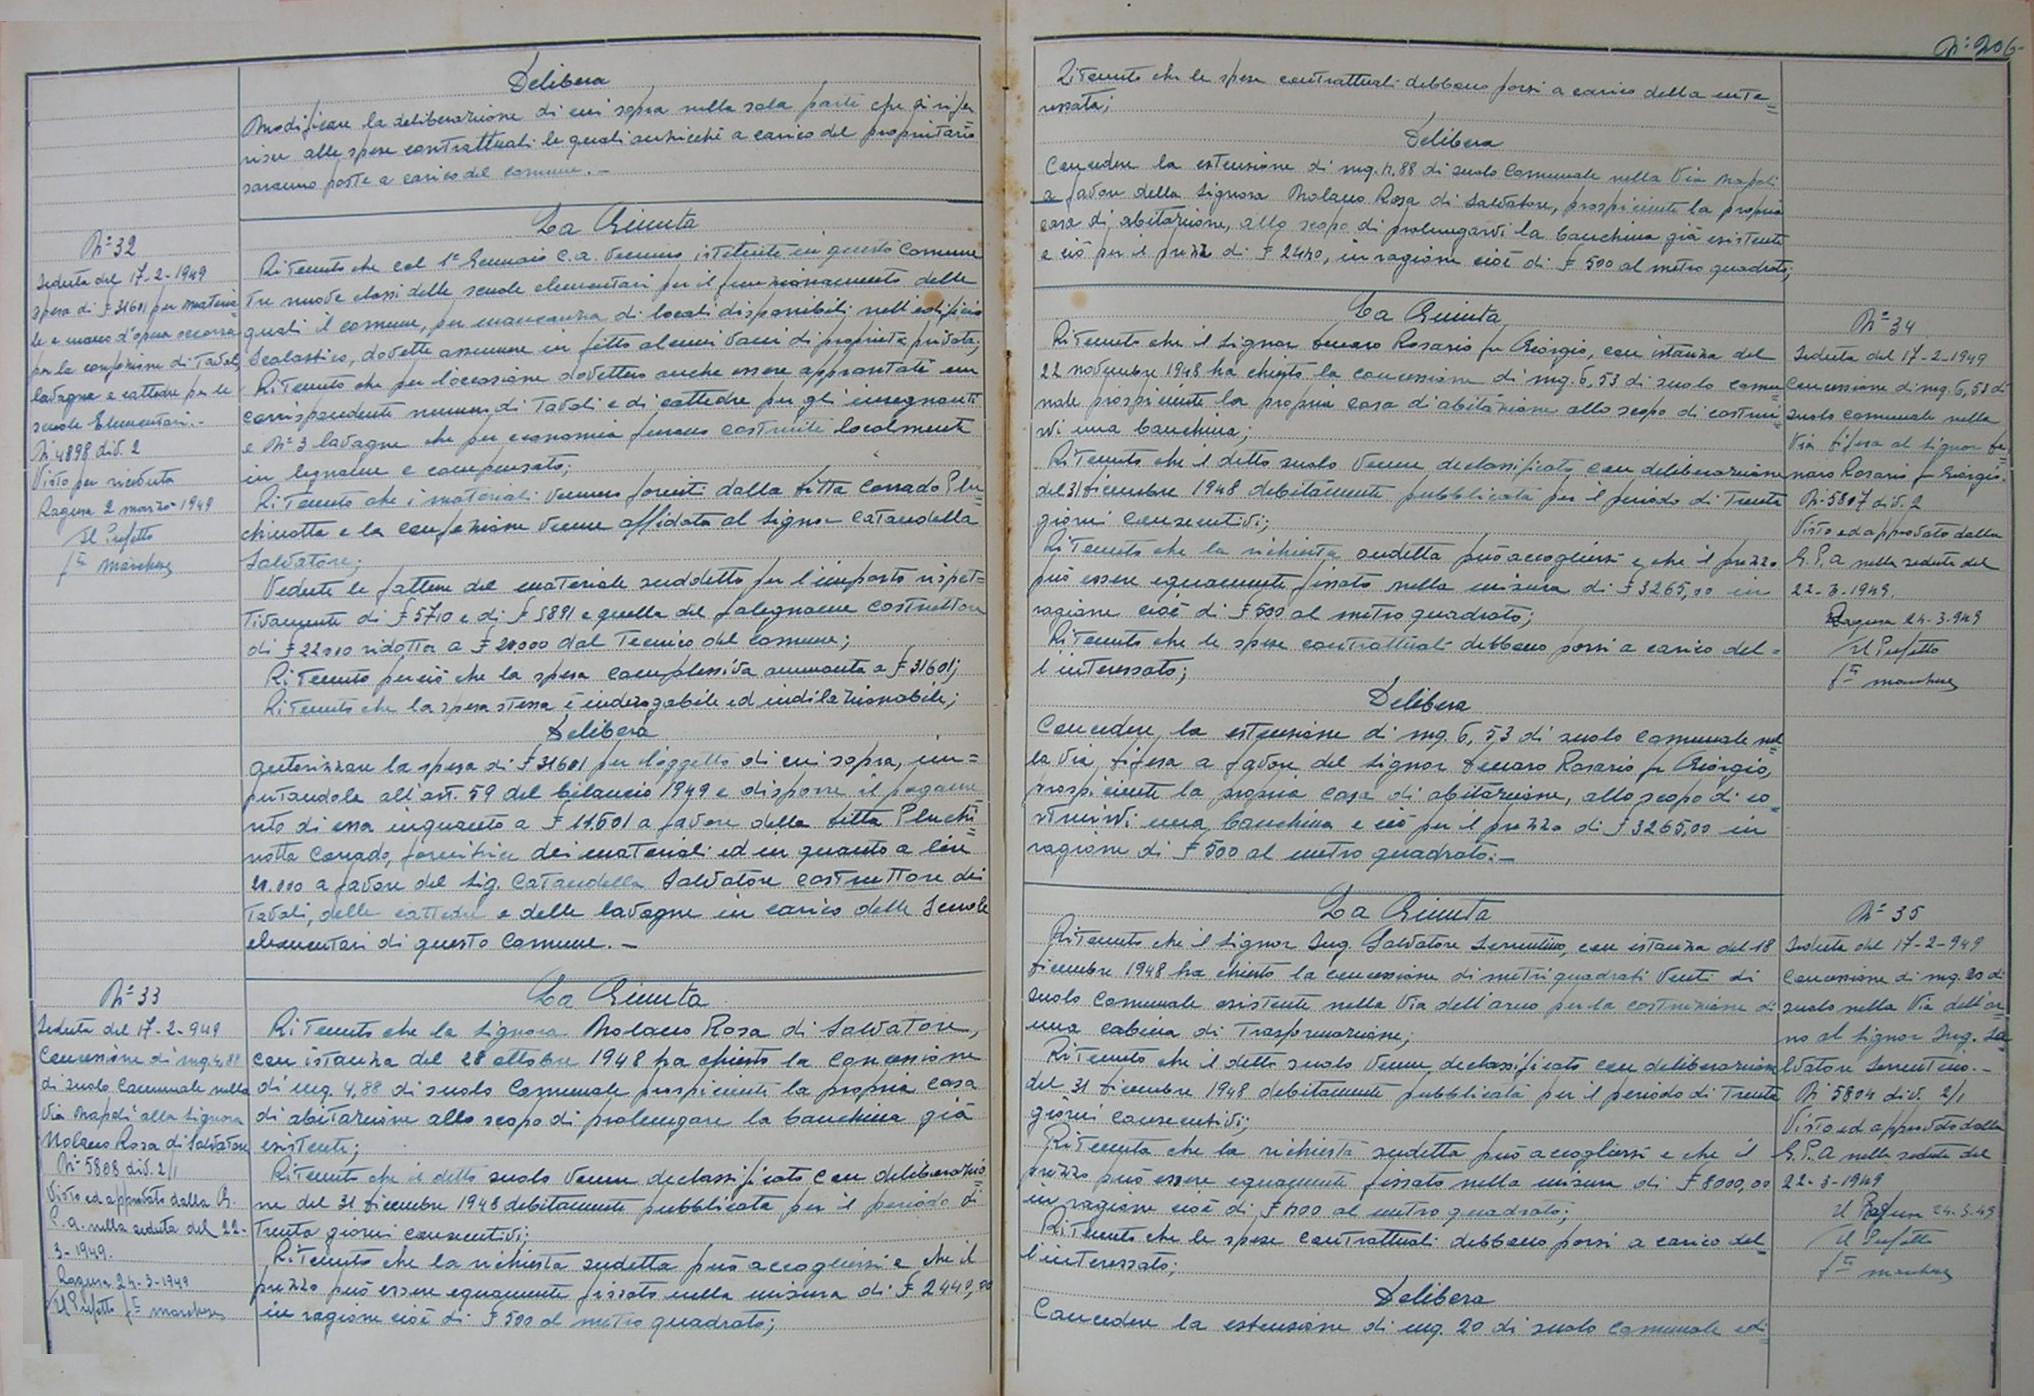 Delibera
Modificare la deliberazione di cui sopra nella sola parte che si rife=
risce alle spese contrattuali le quali anzicché a carico del proprietario
saranno poste a carico del comune. -
La Giunta
N° 32
Seduta del 17-2-1949
spesa di £ 31601 per materia
le e mano d'opera occorsa
per la confezione di Tavoli,
lavagne e cattedre per le
scuole Elementari. -
N° 4898 div. 2
Visto per ricevuta
Ragusa 2 marzo 1949
Il Prefetto
Ritenuto che col 1° Gennaio c.a. vennero istituite in questo Comune
Tre nuove classi delle scuole elementari per il funzionamento delle
quali il comune, per mancanza di locali disponibili nell'edificio
Scolastico, dovette assumere in fitto alcuni vani di proprietà privata;
Ritenuto che per l'occasione dovettero anche essere approntati un
corrispondente numero di Tavoli e di cattedre per gli insegnanti
e N° 3 lavagne che per economia furono costruite localmente
in legname e compensato;
Ritenuto che i materiali vennero forniti dalla Ditta Corrado Plu=
chinotta e la confezione venne affidata al Signor Cataudella
Salvatore;
Vedute le fatture del materiale suddetto per l'importo rispet=
tivamente di £ 5710 e di £ 5891 e quella del falegname costruttore
di £ 22000 ridotta a £ 20000 dal Tecnico del Comune;
Ritenuto perciò che la spesa complessiva ammonta a £ 31601;
Ritenuto che la spesa stessa è inderogabile ed indilazionabile;
Delibera
Autorizzare la spesa di £ 31601 per l'oggetto di cui sopra, im=
putandola all'art. 59 del bilancio 1949 e disporre il pagame
nto di essa inquanto a £ 11.601 a favore della Ditta Pluchi=
notta Corrado, fornitrice dei materiali ed in quanto a Lire
20.000 a favore del Sig. Cataudella Salvatore costruttore dei
Tavoli, delle cattedre e delle lavagne in carico delle Scuole
elementari di questo Comune. -
La Giunta
N° 33
Seduta del 17-2-949
Concessione di mq. 4,88
di suolo Comunale nella
Via Napoli alla Signora
Molano Rosa di Salvatore
N° 5808 div. 2/1
Visto ed approvato dalla G.
P.A. nella seduta del 22-
3-1949.
Ragusa 24-3-1949
Il Prefetto
Ritenuto che la Signora Molano Rosa di Salvatore,
con istanza del 28 ottobre 1948 ha chiesto la concessione
di mq. 4,88 di suolo Comunale prospiciente la propria casa
di abitazione allo scopo di prolungare la banchina già
esistente;
Ritenuto che il detto suolo venne declassificato con deliberazio
ne del 31 Dicembre 1948 debitamente pubblicata per il periodo di
Trenta giorni consecutivi;
Ritenuto che la richiesta sudetta può accogliersi e che il
prezzo può essere equamente fissato nella misura di £ 2440,00
in ragione cioè di £ 500 al metro quadrato;
N° 206
Ritenuto che le spese contrattuali debbano porsi a carico della inte=
ressata;
Delibera
Concedere la estensione di mq. 4.88 di suolo Comunale nella Via Napoli
a favore della Signora Molano Rosa di Salvatore, prospiciente la propria
casa di abitazione, allo scopo di prolungarvi la banchina già esistente
e ciò per il prezzo di £ 2440, in ragione cioè di £ 500 al metro quadrato;
La Giunta
Ritenuto che il Signor Denaro Rosario fu Giorgio, con istanza del
22 novembre 1948 ha chiesto la concessione di mq. 6,53 di suolo comu=
nale prospiciente la propria casa d'abitazione allo scopo di costrui=
rvi una banchina;
Ritenuto che il detto suolo venne declassificato con deliberazione
del 31 Dicembre 1948 debitamente pubblicata per il periodo di Trenta
giorni consecutivi;
Ritenuto che la richiesta sudetta può accogliersi e che il prezzo
può essere equamente fissato nella misura di £ 3265,00 in
ragione cioè di £ 500 al metro quadrato;
Ritenuto che le spese contrattuali debbano porsi a carico del=
l'interessato;
N° 34
Seduta del 17-2-1949
Concessione di mq. 6,53 di
suolo comunale nella
Via Difesa al Signor De=
naro Rosario fu Giorgio.
N° 5807 div. 2
Visto ed approvato dalla
G.P.A nella seduta del
22-3-1949.
Ragusa 24-3-949
Il Prefetto
Delibera
Concedere la estensione di mq. 6,53 di suolo comunale nel=
la Via Difesa a favore del Signor Denaro Rosario fu Giorgio,
prospiciente la propria casa di abitazione, allo scopo di co=
struirvi una banchina e ciò per il prezzo di £ 3265,00 in
ragione di £ 500 al metro quadrato. -
La Giunta
Ritenuto che il Signor Ing. Salvatore Sorrentino, con istanza del 18
Dicembre 1948 ha chiesto la concessione di metri quadrati Venti di
suolo Comunale esistente nella Via dell'arno per la costruzione di
una cabina di Trasformazione;
Ritenuto che il detto suolo venne declassificato con deliberazione
del 31 Dicembre 1948 debitamente pubblicata per il periodo di Trenta
giorni consecutivi;
Ritenuta che la richiesta sudetta può accogliersi e che il
prezzo può essere equamente fissato nella misura di £ 8000,00
in ragione cioè di £ 400 al metro quadrato;
Ritenuto che le spese contrattuali debbano porsi a carico del=
l'interessato;
N° 35
Seduta del 17-2-949
Concessione di mq. 20 di
suolo nella Via dell'ar=
no al Signor Ing. Sa=
lvatore Sorrentino. -
N° 5804 div. 2/1
Visto ed approvato dalla
G.P.A nella seduta del
22-3-1949
Il Ragusa 24-3-49
Il Prefetto
Delibera
Concedere la estensione di mq. 20 di suolo comunale edi=